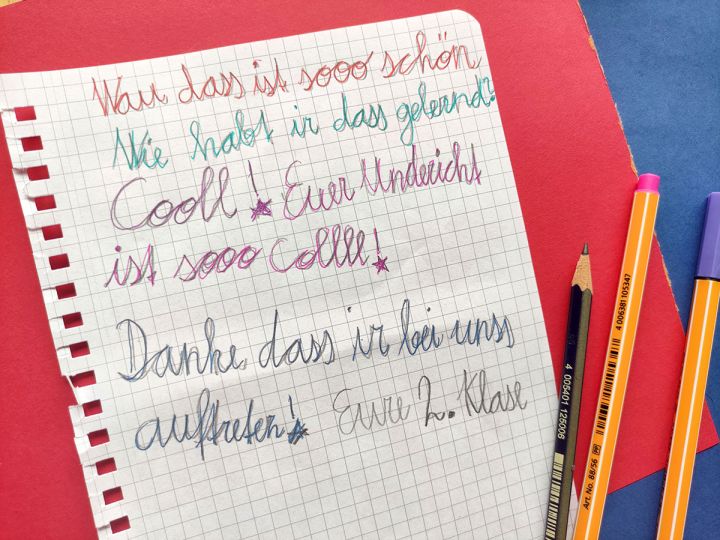 Wau dass ist sooo schön
Wie habt ir dass gelernd?
Cooll! Euer Undericht
ist sooo Collll!
Danke, dass ir bei unss
auftreten! Eure 2. Klase
4 005401 126006
Art. No. 88/56
4 006381 105347